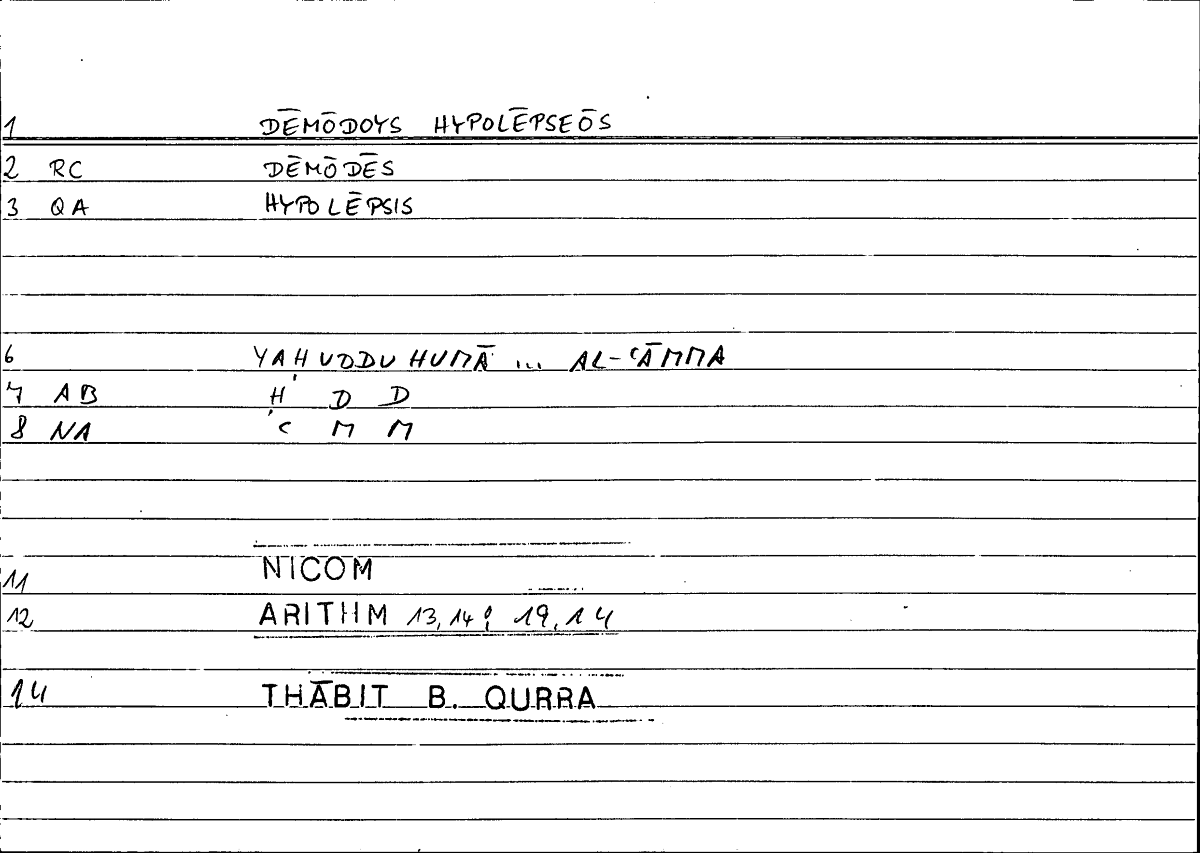 1 DĒMŌDOYS HYPOLĒPSEŌS
2 RC DĒMŌDĒS
3 QA HYPOLĒPSIS
6 YAḤUDDUHUMĀ ... AL-ʿĀMMA
7 AB Ḥ D D
8 NA ʿ M M
11 NICOM
12 ARITHM 13,14; 19,14
14 THĀBIT B. QURRA